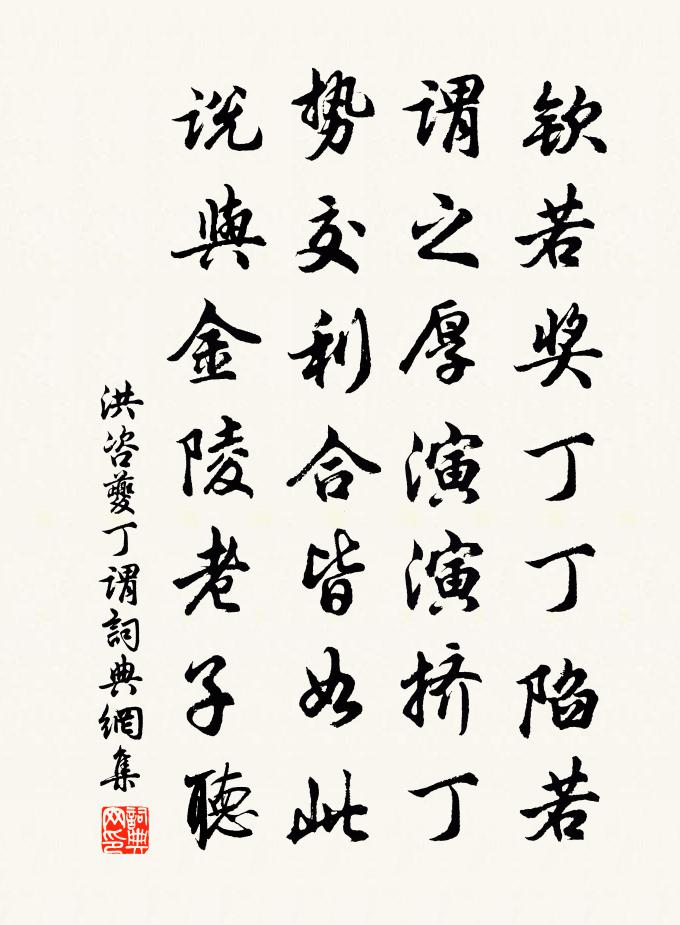 钦若奖丁丁陷若
谓之厚演演挤丁
势交利合皆如此
说与金陵老子聽
洪咨夔丁谓詞典網集
詞典
网印